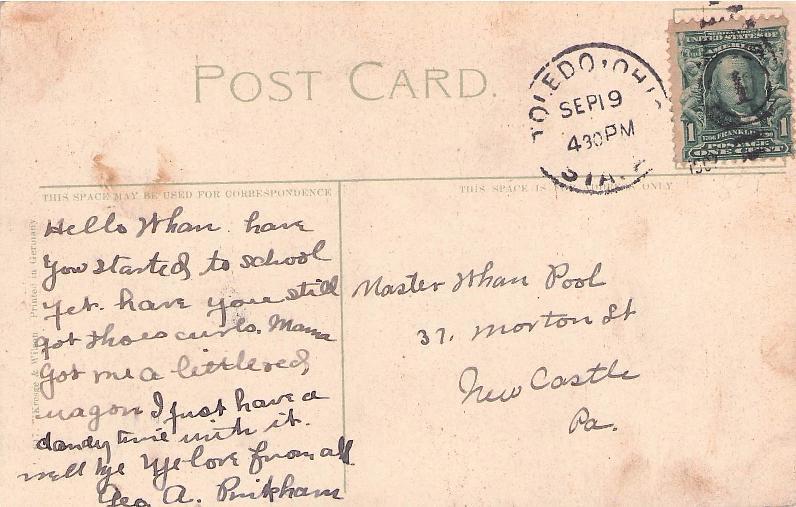 POST CARD.
TOLEDO, OHIO
SEP 19
430 PM
STA.
SERIES 1902
UNITED STATES OF
AMERICA
1 1
FRANKLIN
POSTAGE
ONE CENT
THIS SPACE MAY BE USED FOR CORRESPONDENCE
THIS SPACE IS ONLY
Printed in Germany
Kresge & Wilson
Hello Whan have
you started to school
yet. have you still
got thoes curls. Mama
Got me a little red
wagon I just have a
dandy time with it.
well bye bye love from all
Geo. A.
Master Whan Pool
37. Morton St
New Castle
Pa.